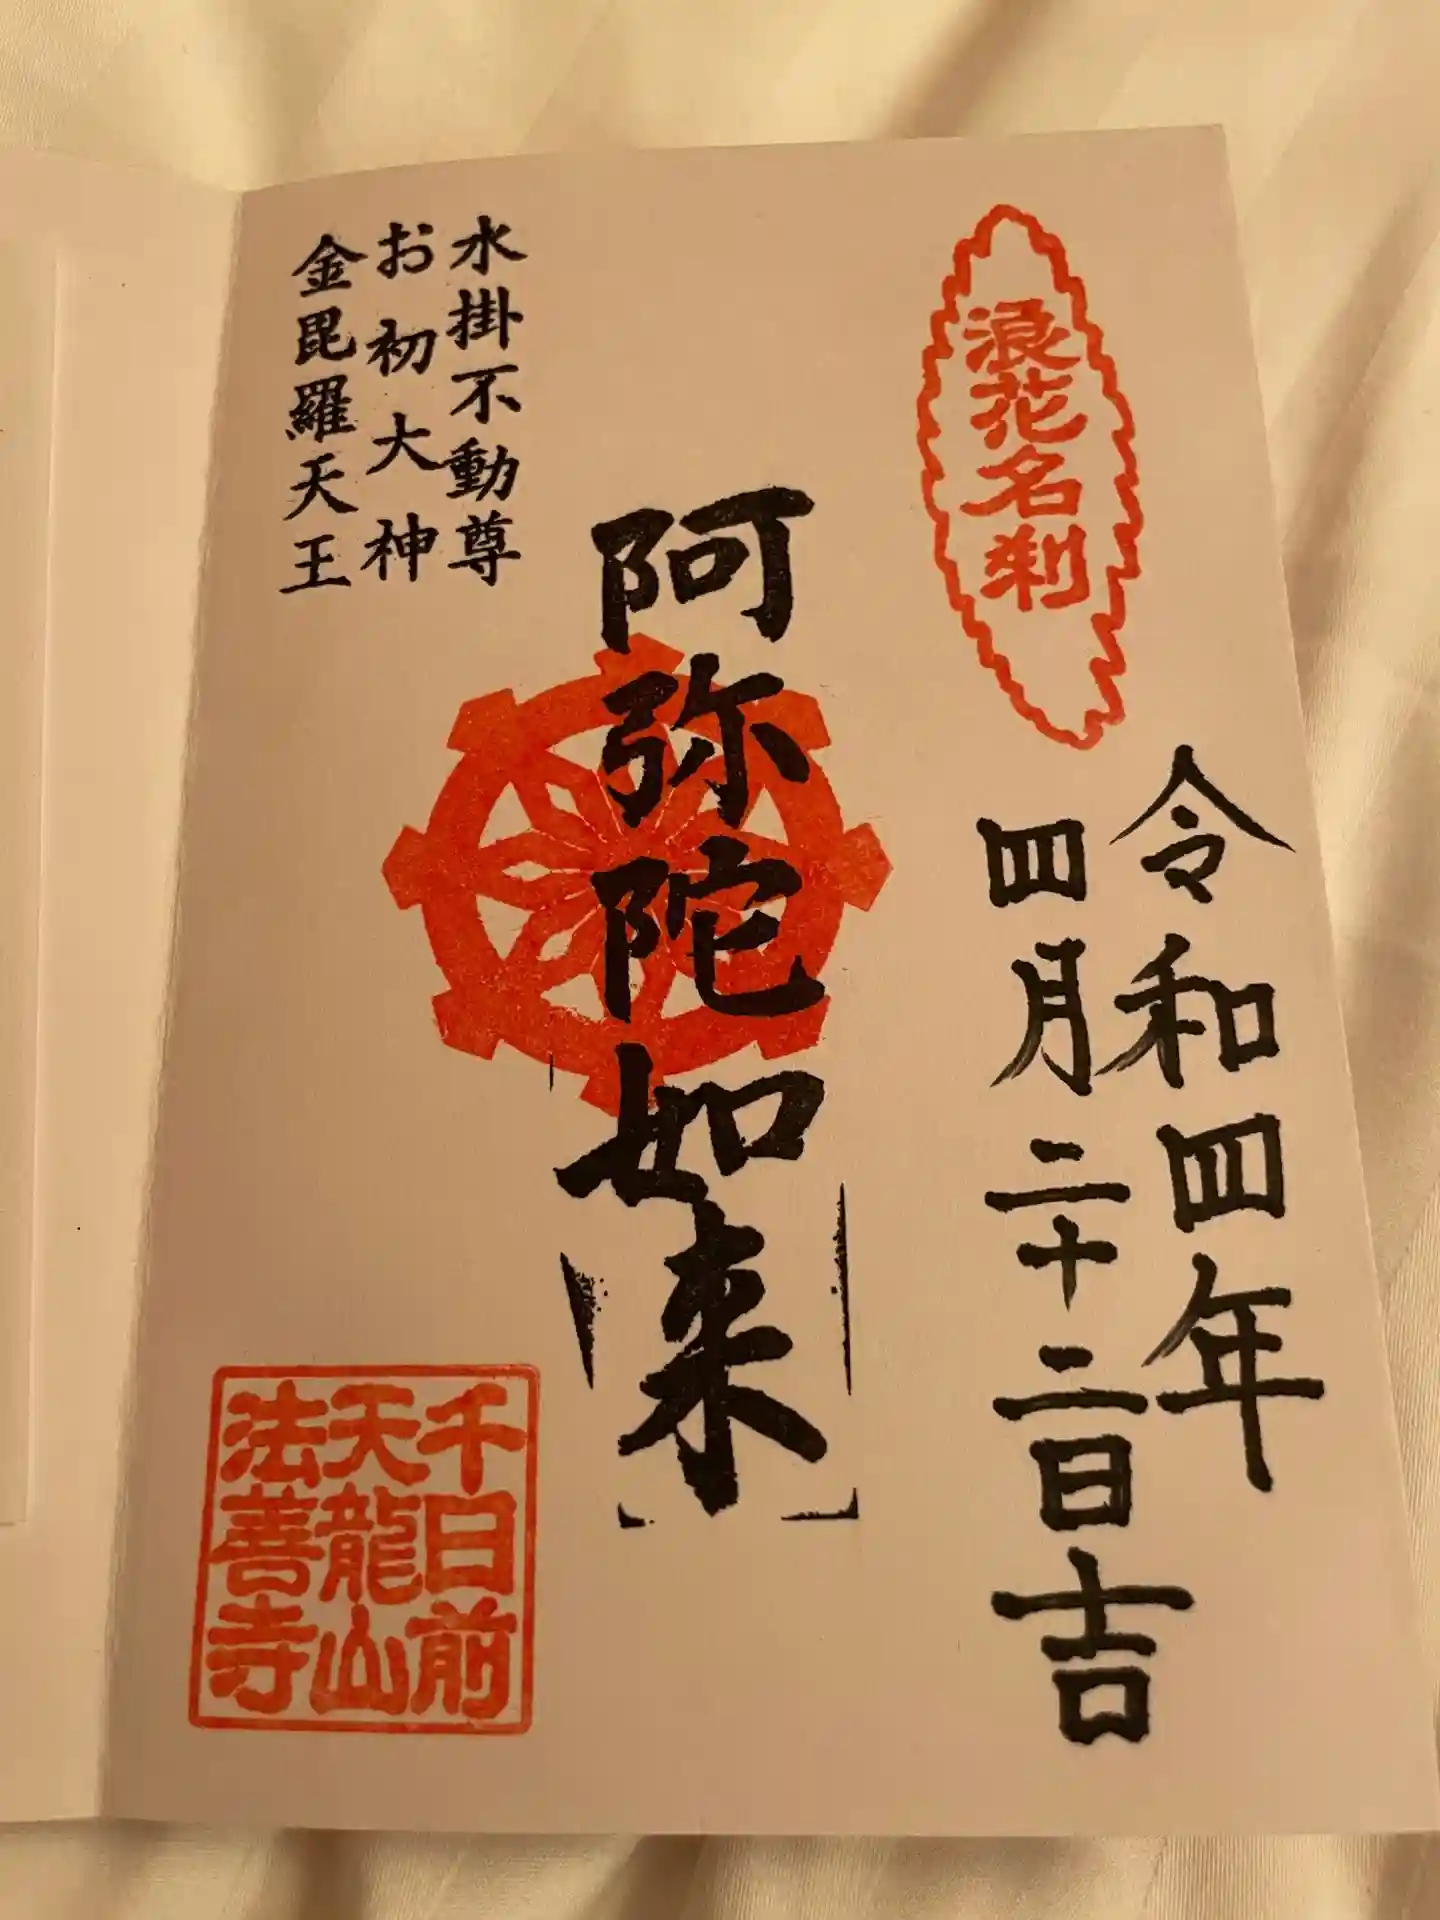 浪花名刹
令和四年
四月二十二日吉
阿弥陀如来
水掛不動尊
お初大神
金毘羅天王
千日前
天龍山
法善寺